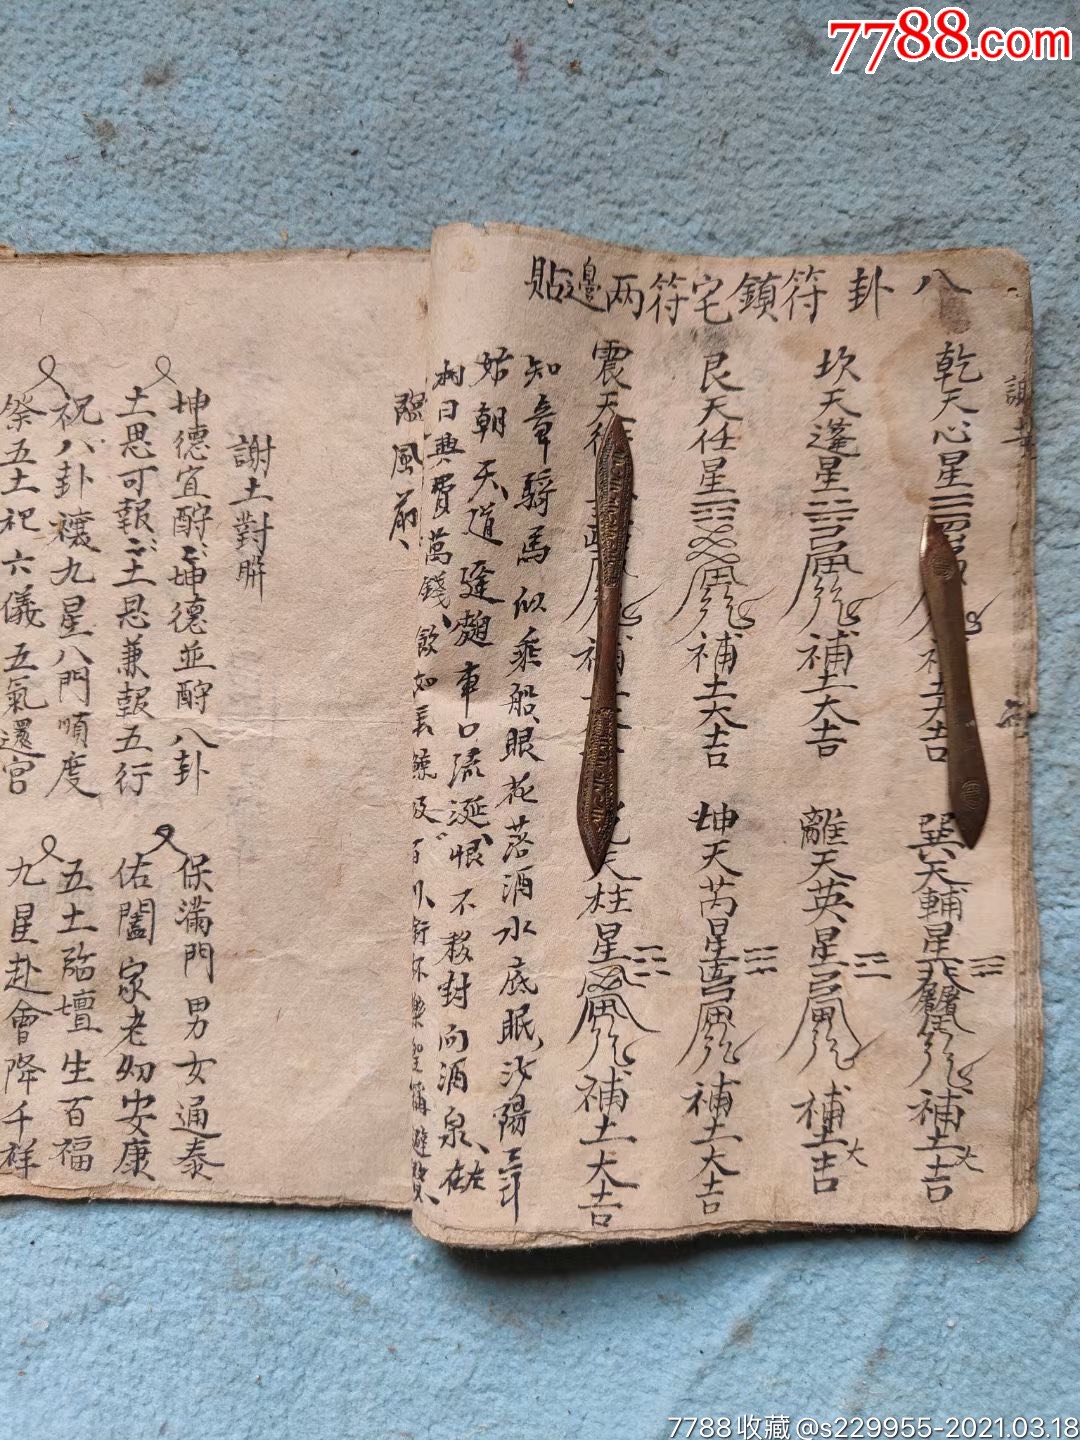 7788.com
八卦符鎮宅符两边貼
乾天心星
補土大吉
巽天輔星
補土大吉
坎天蓬星
補土大吉
離天英星
補土大吉
艮天任星
補土大吉
坤天芮星
補土大吉
震天
補
天柱星
補土大吉
知章騎馬似乘船眼花落酒水底眠汝陽三斗
始朝天道逢麯車口流涎恨不移封向酒泉左
相日興費萬錢飲如長鯨吸百川銜杯樂聖稱避賢
臨風前
謝土對聯
坤德宜酧坤德並酧八卦
土恩可報土恩兼報五行
祝八卦禳九星八門順度
祭五土祀六儀五氣還宫
保滿門男女通泰
佑闔家老幼安康
五土臨壇生百福
九星赴會降千祥
7788收藏 @s229955-2021.03.18